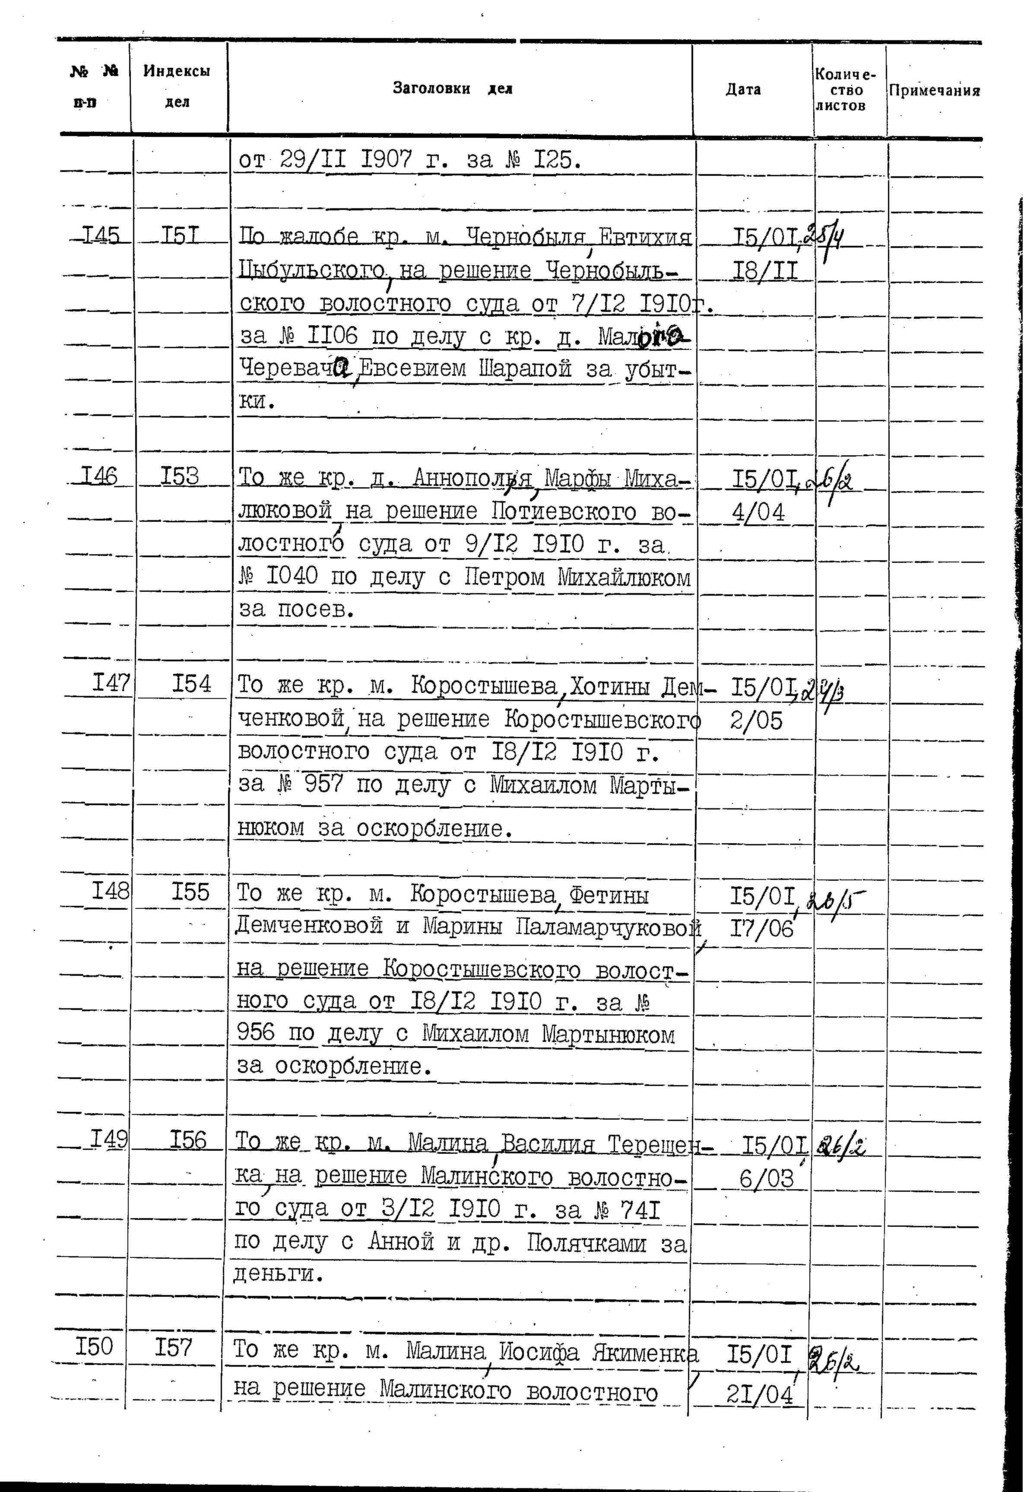 № № Индексы Заголовки дел Дата Количе- Примечания
п-п дел ство
листов
от 29/II I907 г. за № I25.
I45 I5I По жалобе кр. м. Чернобыля, Евтихия I5/OI, 25/4
Цыбульского, на решение Чернобыль- I8/II
ского волостного суда от 7/I2 I9IOг.
за № IIO6 по делу с кр. д. Малого
Черевача, Евсевием Шарапой за убыт-
ки.
I46 I53 То же кр. д. Аннополя, Марфы Миха- I5/OI, 26/2
люковой, на решение Потиевского во- 4/04
лостного суда от 9/I2 I9IO г. за
№ IO40 по делу с Петром Михайлюком
за посев.
I47 I54 То же кр. м. Коростышева, Хотины Дем- I5/OI, 24/3
ченковой, на решение Коростышевского 2/05
волостного суда от I8/I2 I9IO г.
за № 957 по делу с Михаилом Марты-
нюком за оскорбление.
I48 I55 То же кр. м. Коростышева, Фетины I5/OI, 26/5
Демченковой и Марины Паламарчуковой, I7/06
на решение Коростышевского волост-
ного суда от I8/I2 I9IO г. за №
956 по делу с Михаилом Мартынюком
за оскорбление.
I49 I56 То же кр. м. Малина, Василия Терещен- I5/OI, 26/2
ка, на решение Малинского волостно- 6/03
го суда от 3/I2 I9IO г. за № 74I
по делу с Анной и др. Полячками за
деньги.
I50 I57 То же кр. м. Малина, Иосифа Якименка, I5/OI, 26/2
на решение Малинского волостного 2I/04